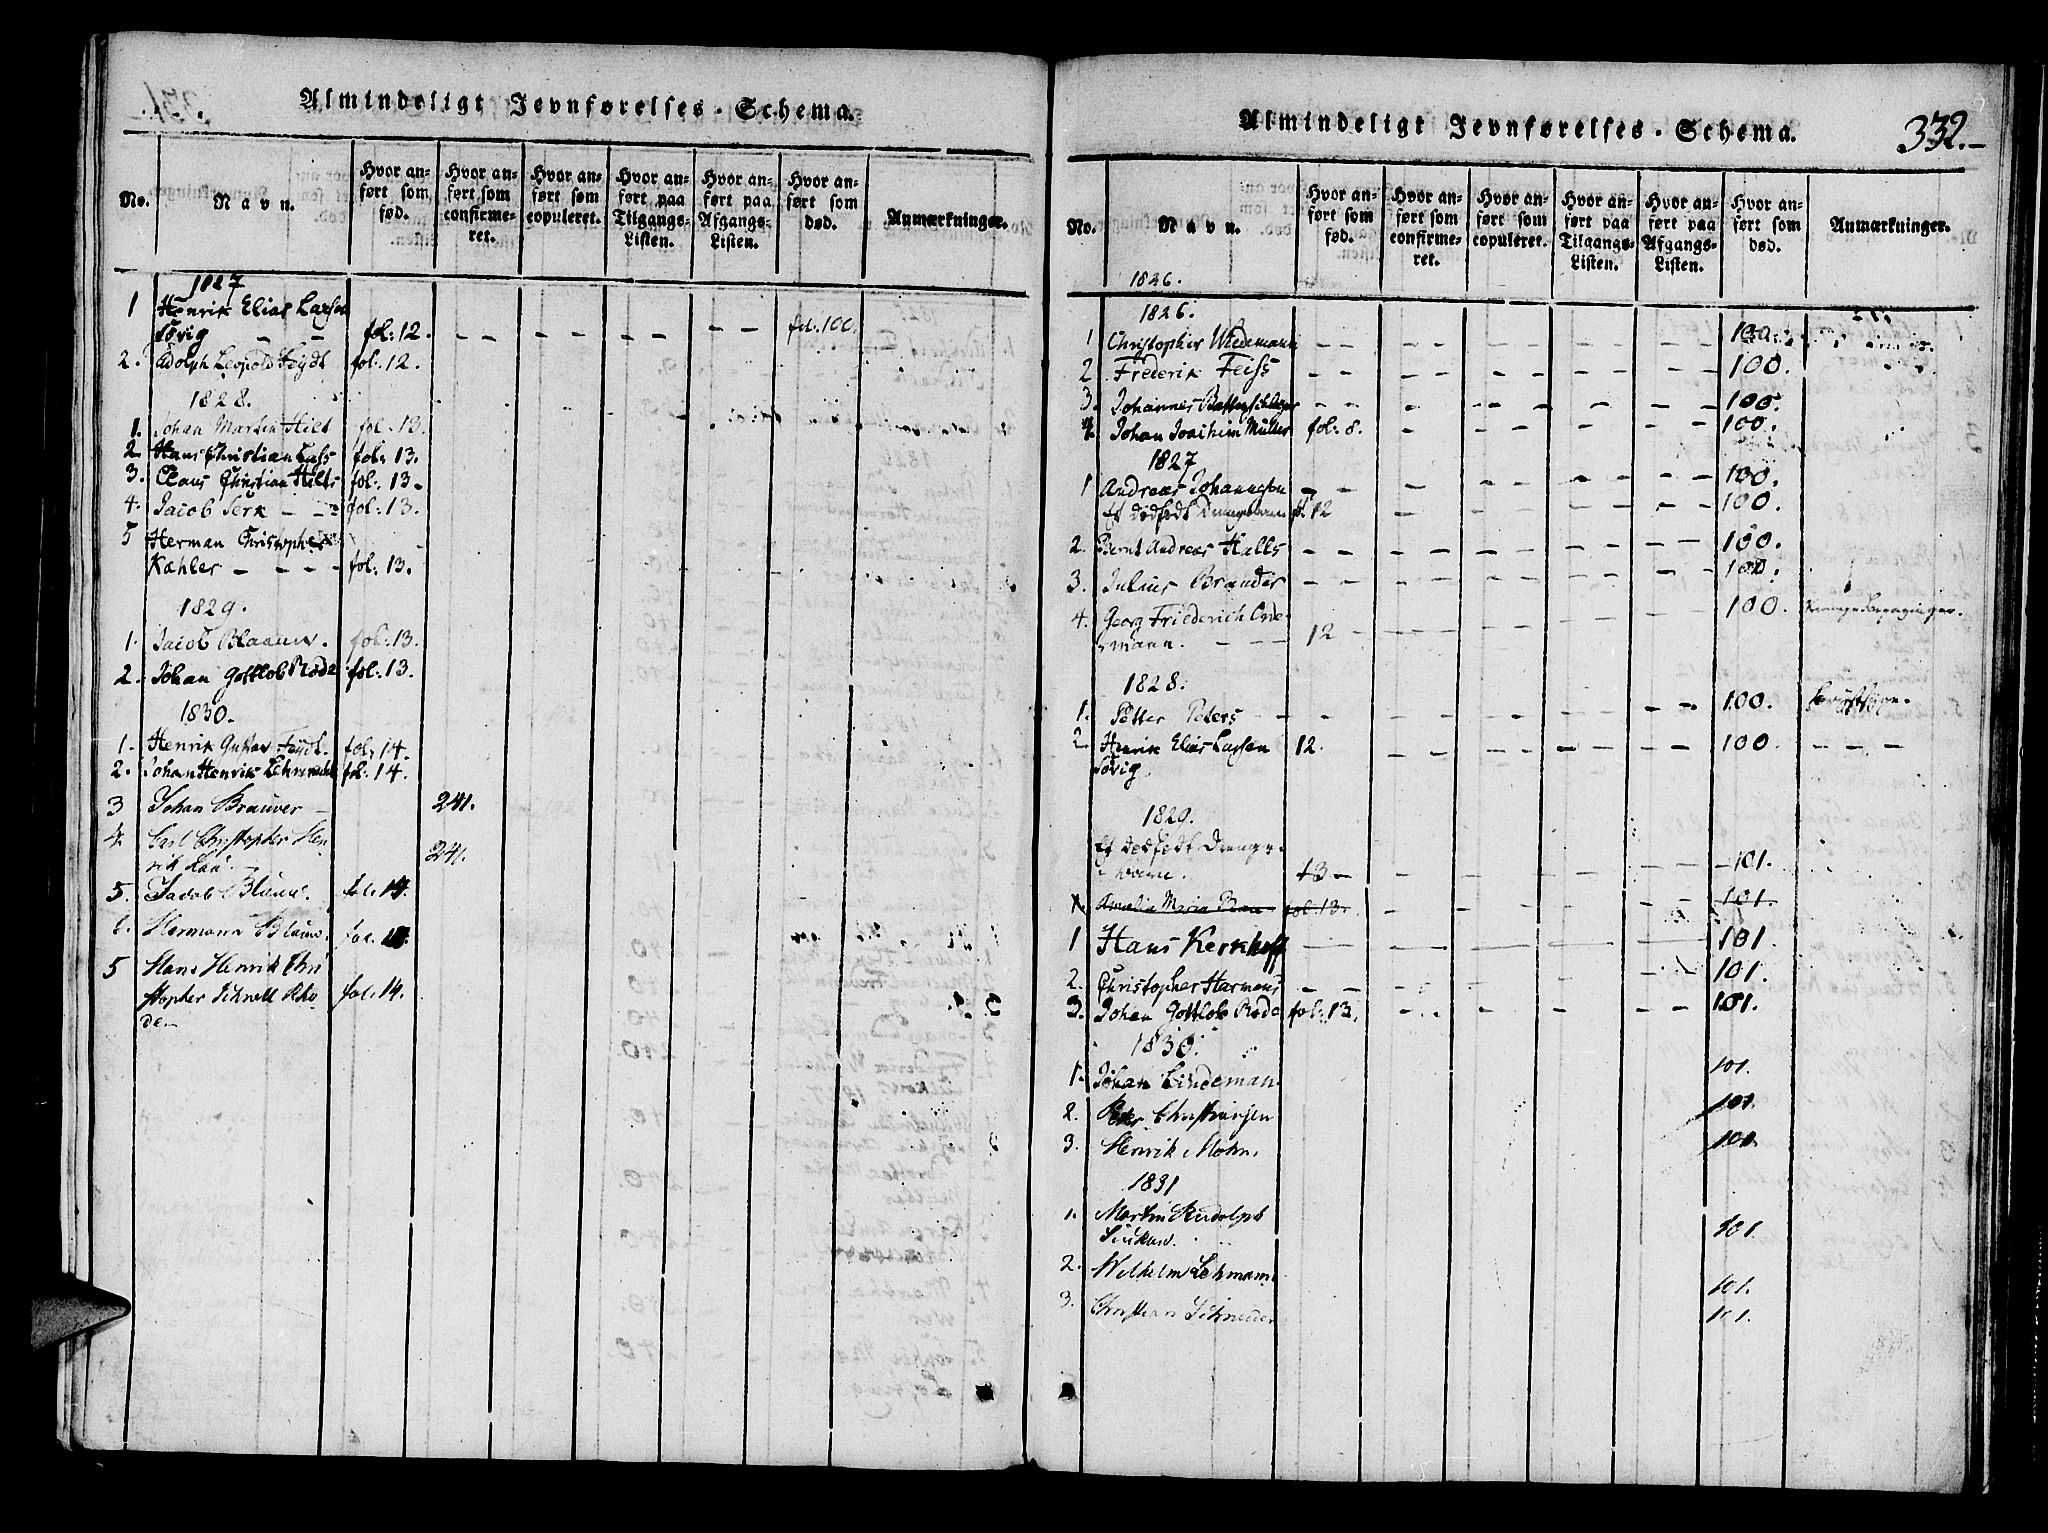 Almindeligt Jevnførelses-Schema.
No. Navn. Hvor anført som fød. Hvor anført som confirmeret. Hvor anført som copuleret. Hvor anført paa Tilgangs-Listen. Hvor anført paa Afgangs-Listen. Hvor anført som død. Anmærkninger.
1827
1 Henrik Elias Larsen
Søvig fol. 12. fol. 100.
2. Adolph Leopold Feydt fol. 12.
1828.
1. Johan Martin Hilt fol. 13.
2 Hans Christian fol. 13.
3. Claus Christian Hilts fol. 13.
4. Jacob Serk fol. 13.
5 Herman Christopher
Kæhler fol. 13.
1829.
1. Jacob Blaauw. fol. 13.
2. Johan Gottlob Rode fol. 13.
1830.
1. Henrik Gustav Feydt. fol. 14.
2. Johan Henrik fol. 14.
3 Johan Brauver 241.
4. Carl Christopher Hen
rik Lau. 241.
5. Jacob Blauw. fol. 14.
6. Hermann Blauw. fol. 14.
5 Hans Henrik Chri
stopher Schnell Rho fol. 14.
de
Almindeligt Jevnførelses-Schema. 332.
No. Navn. Hvor anført som fød. Hvor anført som confirmeret. Hvor anført som copuleret. Hvor anført paa Tilgangs-Listen. Hvor anført paa Afgangs-Listen. Hvor anført som død. Anmærkninger.
1826.
1826.
1 Christopher Wiedemann 100.
2 Frederik Feiss 100.
3. Johannes 100.
4. Johan Joachim Müller fol. 8. 100.
1827
1 Andreas Johannsen 100.
Et dødfødt Drengebarn f. 12 100.
2. Bernt Andreas Halts 100.
3. Julius Brandis 100.
4. Georg Friederich 100.
mann. 12
1828.
1. Petter Peters 100.
2. Henrik Elias Larsen 12. 100
Søvig
1829.
Et dødfødt Drenge-
barn. 13 101.
Amalia Maria fol. 13. 101.
1 Hans Kerkhoff 101.
2. Christopher Harmens 101.
3. Johan Gottlob Rode fol. 13. 101.
1830.
1. Johan Lindeman. 101.
2. Peter Christensen 101.
3. Henrik Mohn. 101.
1831
1. Martin Rudolph
101.
2. Wilhelm Lehmann 101.
3. Christian Schneider 101.